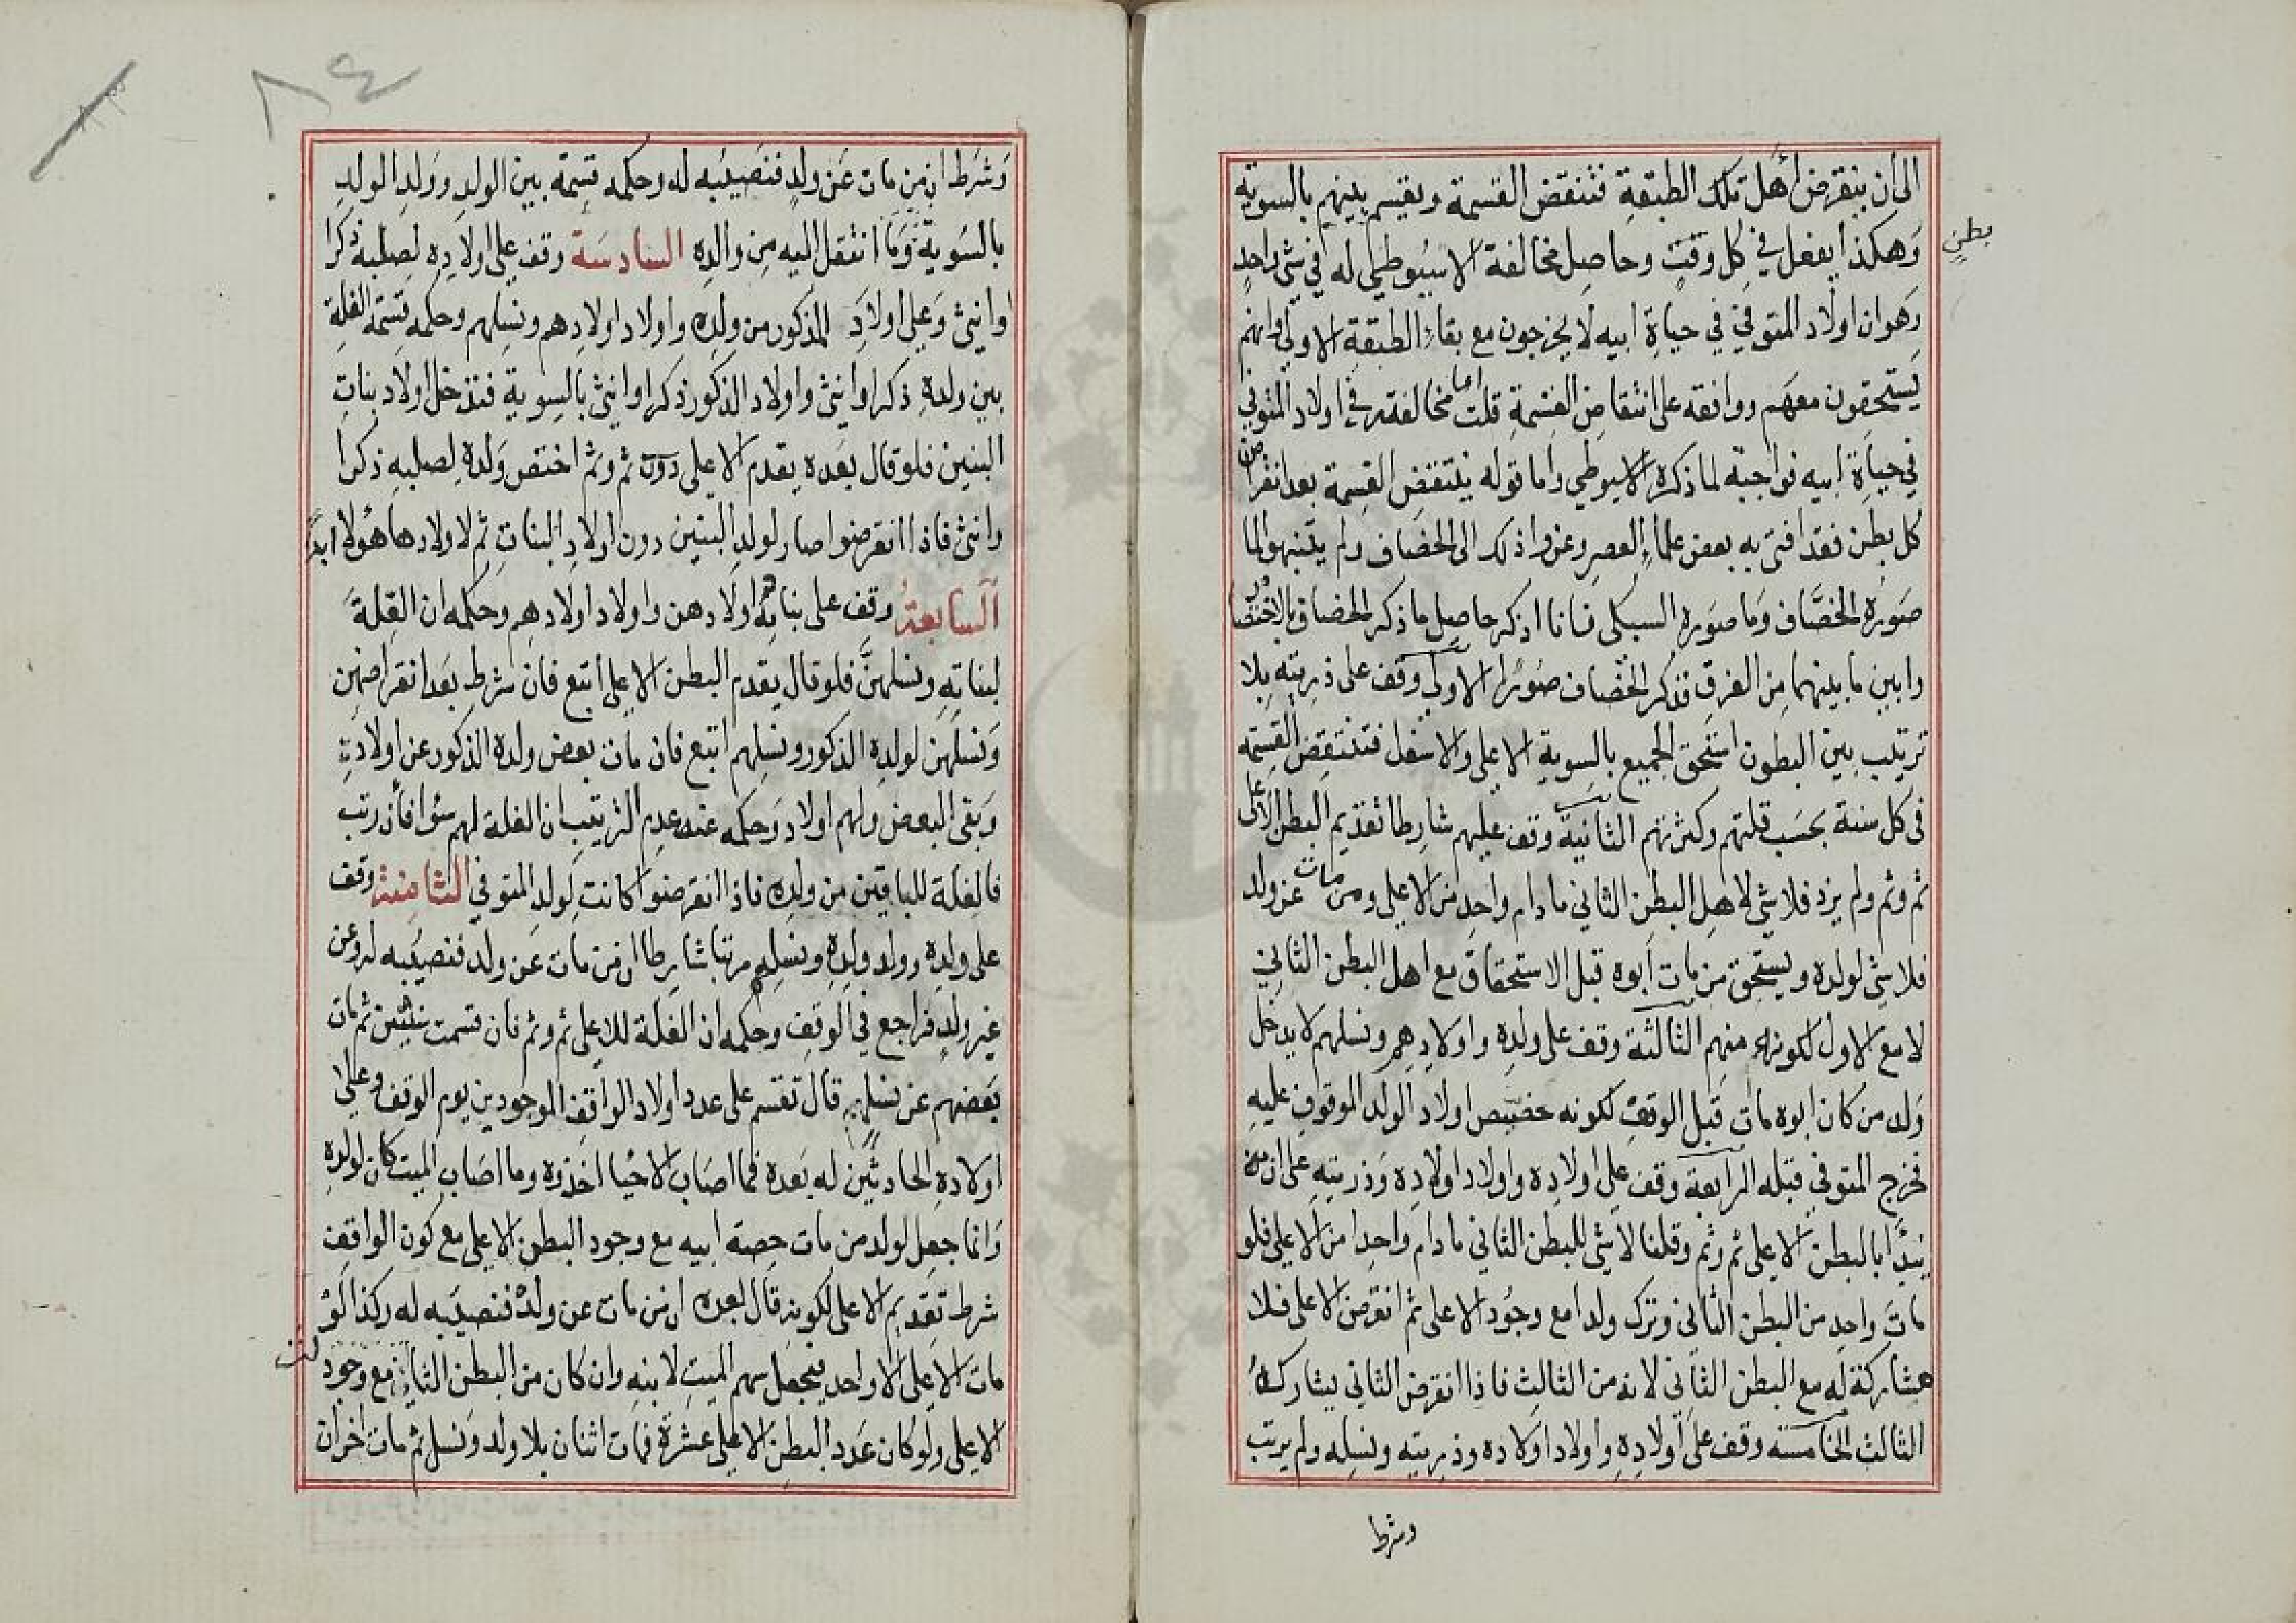 الى ان ينقرض اهل تلك الطبقة فتنقض القسمة ويقسم بينهم بالسوية
وهكذا يفعل في كل وقت وحاصل مخالفة الاسيوطي له في شئ واحد
بطن
وهو ان اولاد المتوفي في حياة ابيه لا يخرجون مع بقاء الطبقة الاولى وانهم
يستحقون معهم ووافقه على انتقاض القسمة قلت اما مخالفته في اولاد المتوفي
في حياة ابيه فواجبة لما ذكره الاسيوطي واما قوله ينتقض القسمة بعد انقراض
كل بطن فقد افتى به بعض علماء العصر وعزوا ذلك الى الخصاف ولم يتنبهوا لما
صوره الخصاف وما صوره السبكى فانا اذكر حاصل ما ذكر الخصاف بالاختصار
وابين ما بينهما من الفرق فذكر الخصاف صورا الاولى وقف على ذريته بلا
ترتيب بين البطون استحق الجميع بالسوية الاعلى والاسفل فتنتقض القسمة
فى كل سنة بحسب قلتهم وكثرتهم الثانية وقف عليهم شارطا تقديم البطن الاعلى
ثم وثم ولم يزد فلا شي لاهل البطن الثاني ما دام واحد من الاعلى ومن مات عن ولد
فلا شئ لولده ويستحق من مات ابوه قبل الاستحقاق مع اهل البطن الثاني
لا مع الاول لكونه منهم الثالثة وقف على ولده واولادهم ونسلهم لا يدخل
ولد من كان ابوه مات قبل الوقف لكونه خصص اولاد الولد الموقوف عليه
فخرج المتوفي قبله الرابعة وقف على اولاده واولاد اولاده وذريته على ان
يبدا بالبطن الاعلى ثم وثم وقلنا لا شئ للبطن الثاني ما دام واحدا من الاعلى فلو
مات واحد من البطن الثانى وترك ولدا مع وجود الاعلى ثم انقرض الاعلى فلا
مشاركة له مع البطن الثانى لانه من الثالث فاذا انقرض الثاني يشاركه
الثالث الخامسة وقف على اولاده واولاد اولاده وذريته ونسله ولم يرتب
وشرط
٨٤
وشرط ان من مات عن ولد فنصيبه له وحكمه قسمة بين الولد وولد الولد
بالسوية وما انتقل اليه من والده السادسة وقف على اولاده لصلبه ذكرا
وانثى وعلى اولاد المذكور من ولده واولاد اولادهم ونسلهم وحكمه قسمة الغلة
بين ولده ذكرا وانثى واولاد الذكور ذكرا وانثى بالسوية فتدخل اولاد بنات
البنين فلو قال بعده يقدم الاعلى ثم وثم اختص ولده لصلبه ذكرا
وانثى فاذا انقرضوا صار لولد البنين دون اولاد البنات ثم لاولاد هاهؤلا ابدا
السابعة وقف على بناته واولادهن واولاد اولادهم وحكمه ان الغلة
لبناته ونسلهن فلو قال يقدم البطن الاعلى اتبع فان شرط بعد انقراضهن
ونسلهن لولده الذكور ونسلهم اتبع فان مات بعض ولده الذكور عن اولاده
وبقى البعض ولهم اولاد وحكمه عند عدم الترتيب ان الغلة لهم سوا فان رتب
فالغلة للباقين من ولده فاذا انقرضوا كانت لولد المتوفي الثامنة وقف
على ولده وولد ولده ونسلهم مرتبا شارطا ان من مات عن ولد فنصيبه له وعن
غير ولد فراجع في الوقف وحكمه ان الغلة للاعلى ثم وثم فان قسمت سنين ثم مات
بعضهم عن نسلهم قال تقسم على عدد اولاد الواقف الموجودين يوم الوقف وعلى
اولاده الحادثين له بعده فما اصاب الاحيا اخذوه وما اصاب الميت كان لولده
وانما جعل لولد من مات حصة ابيه مع وجود البطن الاعلى مع كون الواقف
شرط تقديم الاعلى لكونه قال بعده ان من مات عن ولد فنصيبه له وكذا لو
مات الاعلى الا واحد فيجعل سهم الميت لابنه وان كان من البطن الثاني مع وجود
الاعلى ولو كان عدد البطن الاعلى عشرة فمات اثنان بلا ولد ونسل ثم مات اخران